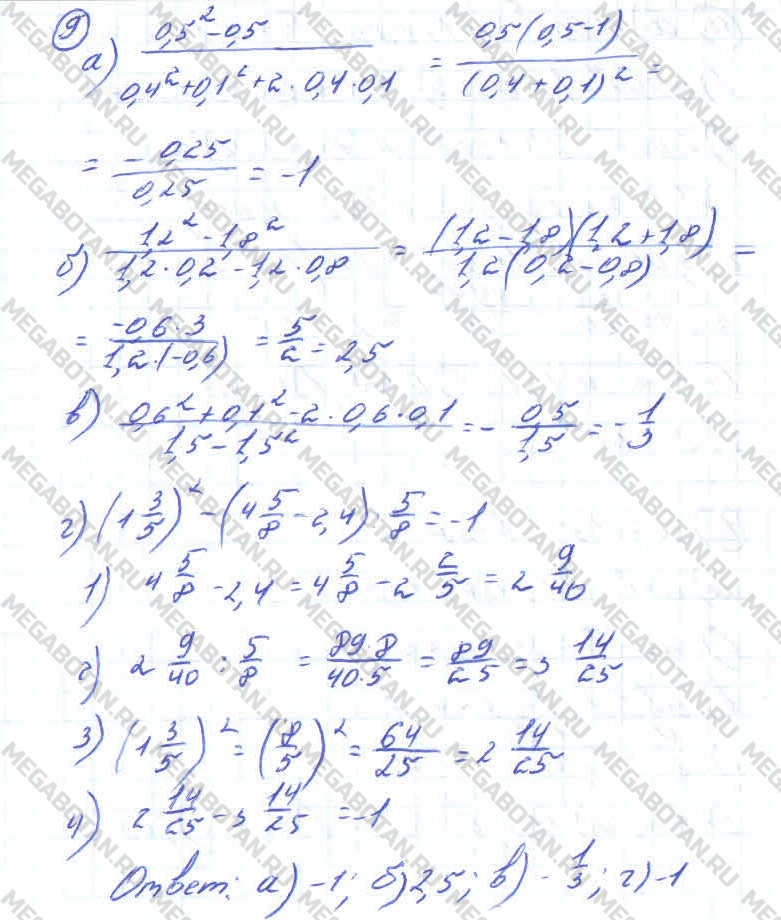 9
а) (0,5² - 0,5)/(0,4² + 0,1² + 2 · 0,4 · 0,1) = 0,5(0,5-1)/(0,4+0,1)² =
= -0,25/0,25 = -1
б) (1,2² - 1,8²)/(1,2 · 0,2 - 1,2 · 0,8) = (1,2-1,8)(1,2+1,8)/1,2(0,2-0,8) =
= -0,6·3/1,2·(-0,6) = 5/2 = 2,5
в) (0,6² + 0,1² - 2 · 0,6 · 0,1)/(1,5 - 1,5²) = - 0,5/1,5 = - 1/3
г) (1 3/5)² - (4 5/8 - 2,4) : 5/8 = -1
1) 4 5/8 - 2,4 = 4 5/8 - 2 2/5 = 2 9/40
2) 2 9/40 : 5/8 = 89·8/40·5 = 89/25 = 3 14/25
3) (1 3/5)² = (8/5)² = 64/25 = 2 14/25
4) 2 14/25 - 3 14/25 = -1
Ответ: а) -1; б) 2,5; в) - 1/3; г) -1
MEGABOTAN.RU